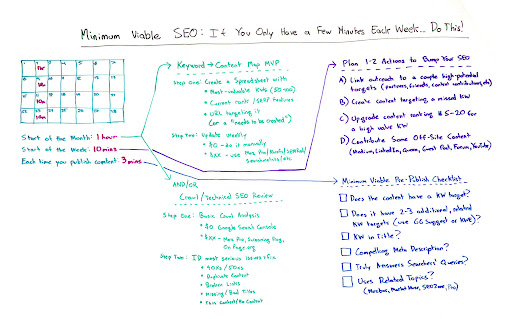 Minimum Viable SEO: If You Only Have a Few Minutes Each Week... Do This!
1hr
10m
10m
10m
Start of the Month: 1 hour
Start of the Week: 10 mins
Each time you publish content: 3 mins
Keyword → Content Map MVP
Step One: Create a Spreadsheet with
• Most-valuable KWs (50-100)
• Current ranks / SERP features
• URL targeting it
(or a "needs to be created")
Step Two: Update Weekly
• $0 - do it manually
• $XX - use Moz Pro/
AND/OR
Crawl/Technical SEO Review
Step One: Basic Crawl Analysis
• $0 Google Search Console
• $XX - Moz Pro, Screaming Frog, OnPage.org
Step Two: ID most serious issues & fix
• 404s / 500s
• Duplicate Content
• Broken Links
• Missing/Bad Titles
• Thin Content/No Content
Plan 1-2 Actions to Bump Your SEO
A) Link outreach to a couple high-potential
targets (partners, friends, content contributors, etc)
B) Create content targeting a missed KW
C) Upgrade content ranking #5-20 for
a high value KW
D) Contribute Some Off-Site Content
(Medium, LinkedIn, Quora, Guest Post, Forum, YouTube)
Minimum Viable Pre-Publish Checklist
Does the content have a KW target?
Does it have 2-3 additional, related
KW targets (use GG Suggest or KWE)?
KW in Title?
Compelling Meta Description?
Truly Answers Searchers' Queries?
Uses Related Topics?
(MozBar, MarketMuse, SEOZone, Pro)